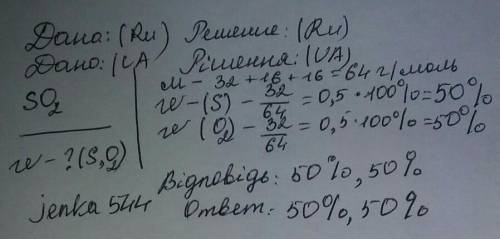 Дана: (Ru) Решение: (Ru)
Дано: (UA Рішення: (UA)
М - 32 + 16 + 16 = 64 г/моль
SO₂
w - (S) - 32/64 = 0,5 * 100% = 50%
w (O₂) - 32/64 = 0,5 * 100% = 50%
w - ? (S, O₂)
Відповідь: 50%, 50%
jenka 544 Ответ: 50%, 50%